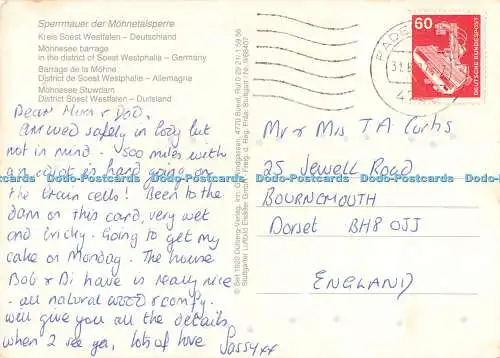 Sperrmauer der Möhnetalsperre
Kreis Soest Westfalen – Deutschland
Möhnesee barrage
in the district of Soest Westphalia – Germany
Barrage de la Möhne
District de Soest Westphalie – Allemagne
Möhnesee Stuwdam
District Soest Westfalen – Duitsland
Dear Mum & Dad,
arrived safely in body but
not in mind. 500 miles with
an idiot is hard going on
the brain cells! Been to the
dam on this card, very wet
and tricky. Going to get my
cake on Monday. The house
Bob & Di have is really nice
- all natural wood & comfy.
will give you all the details
when I see ya, lots of love Sassy xx
60
DEUTSCHE BUNDESPOST
Mr & Mrs T A Curtis
25 Jewell Road
BOURNEMOUTH
Dorset BH8 0JJ
ENGLAND
Dodo-Postcards Dodo-Postcards Dodo-Postcards Dodo-Postcards